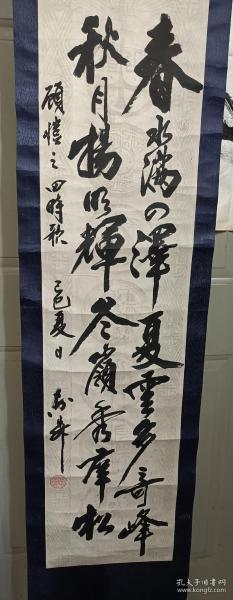 春水满四澤夏雲多奇峰
秋月揚明輝冬嶺秀孤松
顧愷之四時歌 己巳夏日
孔夫子旧书网
www.kongfz.com